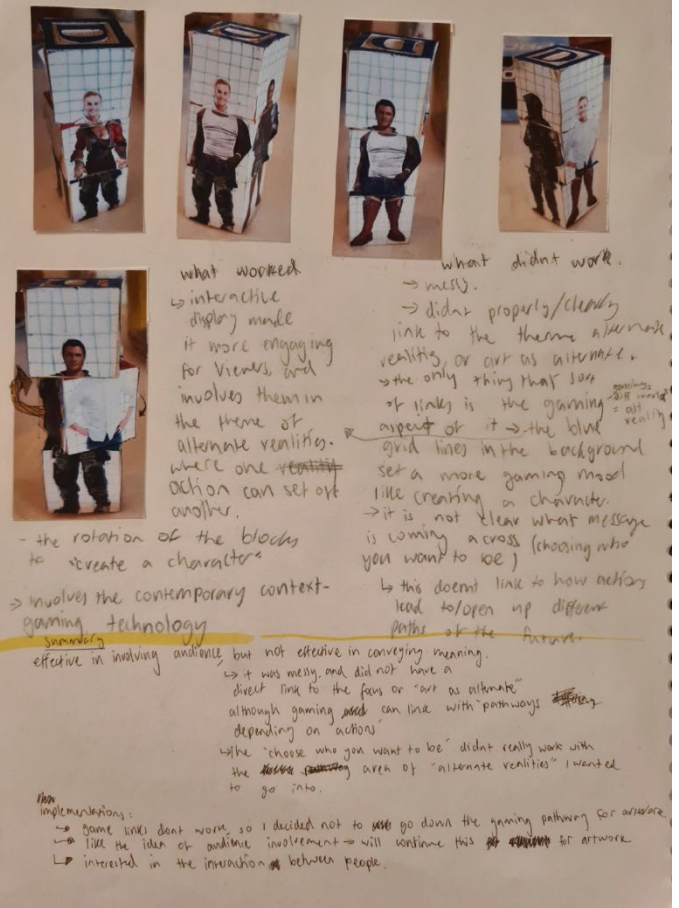 what worked
↳ interactive
display made
it more engaging
for viewers, and
involves them in
the theme of
alternate realities.
where one realiti
action can set off
another.
- the rotation of the blocks
to "create a character"
→ involves the contemporary context-
gaming technology
what didnt work.
→ messy.
→ didnt properly/clearly
link to the theme alternate
realities, or art as alternate.
↳ the only thing that sort
of links is the gaming
aspect of it → the blue
grid lines in the background
set a more gaming mood
like creating a character.
gaming =
= alt
reality
→ it is not clear what message
is coming across (choosing who
you want to be)
↳ this doesnt link to how actions
lead to/open up different
paths of the future.
summary
effective in involving audience, but not effective in conveying meaning.
↳ it was messy, and did not have a
direct link to the focus or "art as alternate"
although gaming can link with "pathways
depending on actions"
↳ the "choose who you want to be" didnt really work with
the area of "alternate realities" I wanted
to go into.
implementations:
↳ game links dont work, so I decided not to go down the gaming pathway for artwork.
↳ like the idea of audience involvement → will continue this for artwork
↳ interested in the interaction between people.